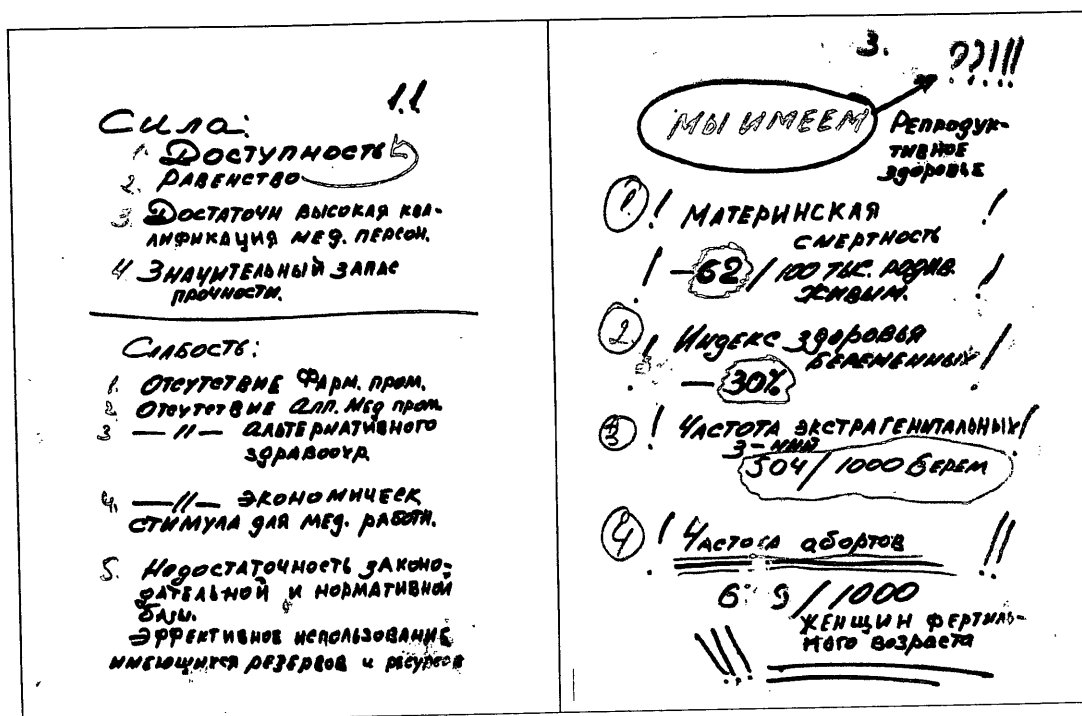 1.1
Сила:
1. Доступность
2. Равенство
3. Достаточн высокая ква-
лификация мед. персон.
4. Значительный запас
прочности.
Слабость:
1. Отсутствие Фарм. пром.
2. Отсутствие апп. мед пром.
3 —//— альтернативного
здравоохр.
4. —//— экономическ
стимула для мед. работн.
5. Недостаточность законо-
дательной и нормативной
базы.
эффективное использование
имеющихся резервов и ресурсов
3.
??!!!
МЫ ИМЕЕМ
Репродук-
тивное
здоровье
1. ! Материнская !
смертность
! – 62 / 100 тыс. родив. !
живым.
2 ! Индекс здоровья
беременных !
! – 30% !
3 ! Частота экстрагенитальных !
з-ний
504 / 1000 берем
4 ! Частота абортов !!
/ 1000
женщин фертиль-
ного возраста
!!!